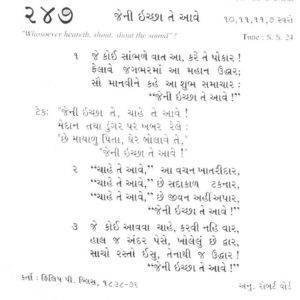 ૨૪૭ જેની ઇચ્છા તે આવે ૧૦,૧૧,૧૧,૭ સ્વરો
"Whosoever heareth, shout, shout the sound" ! Tune : S. S. 24
૧ જે કોઈ સાંભળે વાત આ, કરે તે પોકાર !
ફેલાવે જગભરમાં આ મહાન ઉદ્ધાર;
સૌ માનવીને કહે આ શુભ સમાચાર :
"જેની ઇચ્છા તે આવે !"
ટેક: "જેની ઇચ્છા તે, ચાહે તે આવે !
મેદાન તથા ડુંગર પર ખબર રેલે :
"છે માયાળુ પિતા, ઘેર બોલાવે તે,"
"જેની ઇચ્છા તે આવે !"
૨ "ચાહે તે આવે," આ વચન ખાતરીદાર,
"ચાહે તે આવે," છે સદાકાળ ટકનાર,
"ચાહે તે આવે," છે જીવન અહીં અપાર,
"જેની ઇચ્છા તે આવે !"
૩ જે કોઈ આવવા ચાહે, કરવી નહિ વાર,
હાલ જ અંદર પેસે, ખોલેલું છે દ્વાર,
સાચો રસ્તો ઈસુ, તેનાથી જ ઉદ્ધાર !
"જેની ઇચ્છા તે આવે !"
કર્તા : ફિલિપ પી. બ્લિસ, ૧૮૩૮-૭૬ અનુ. રોબર્ટ વોર્ડ